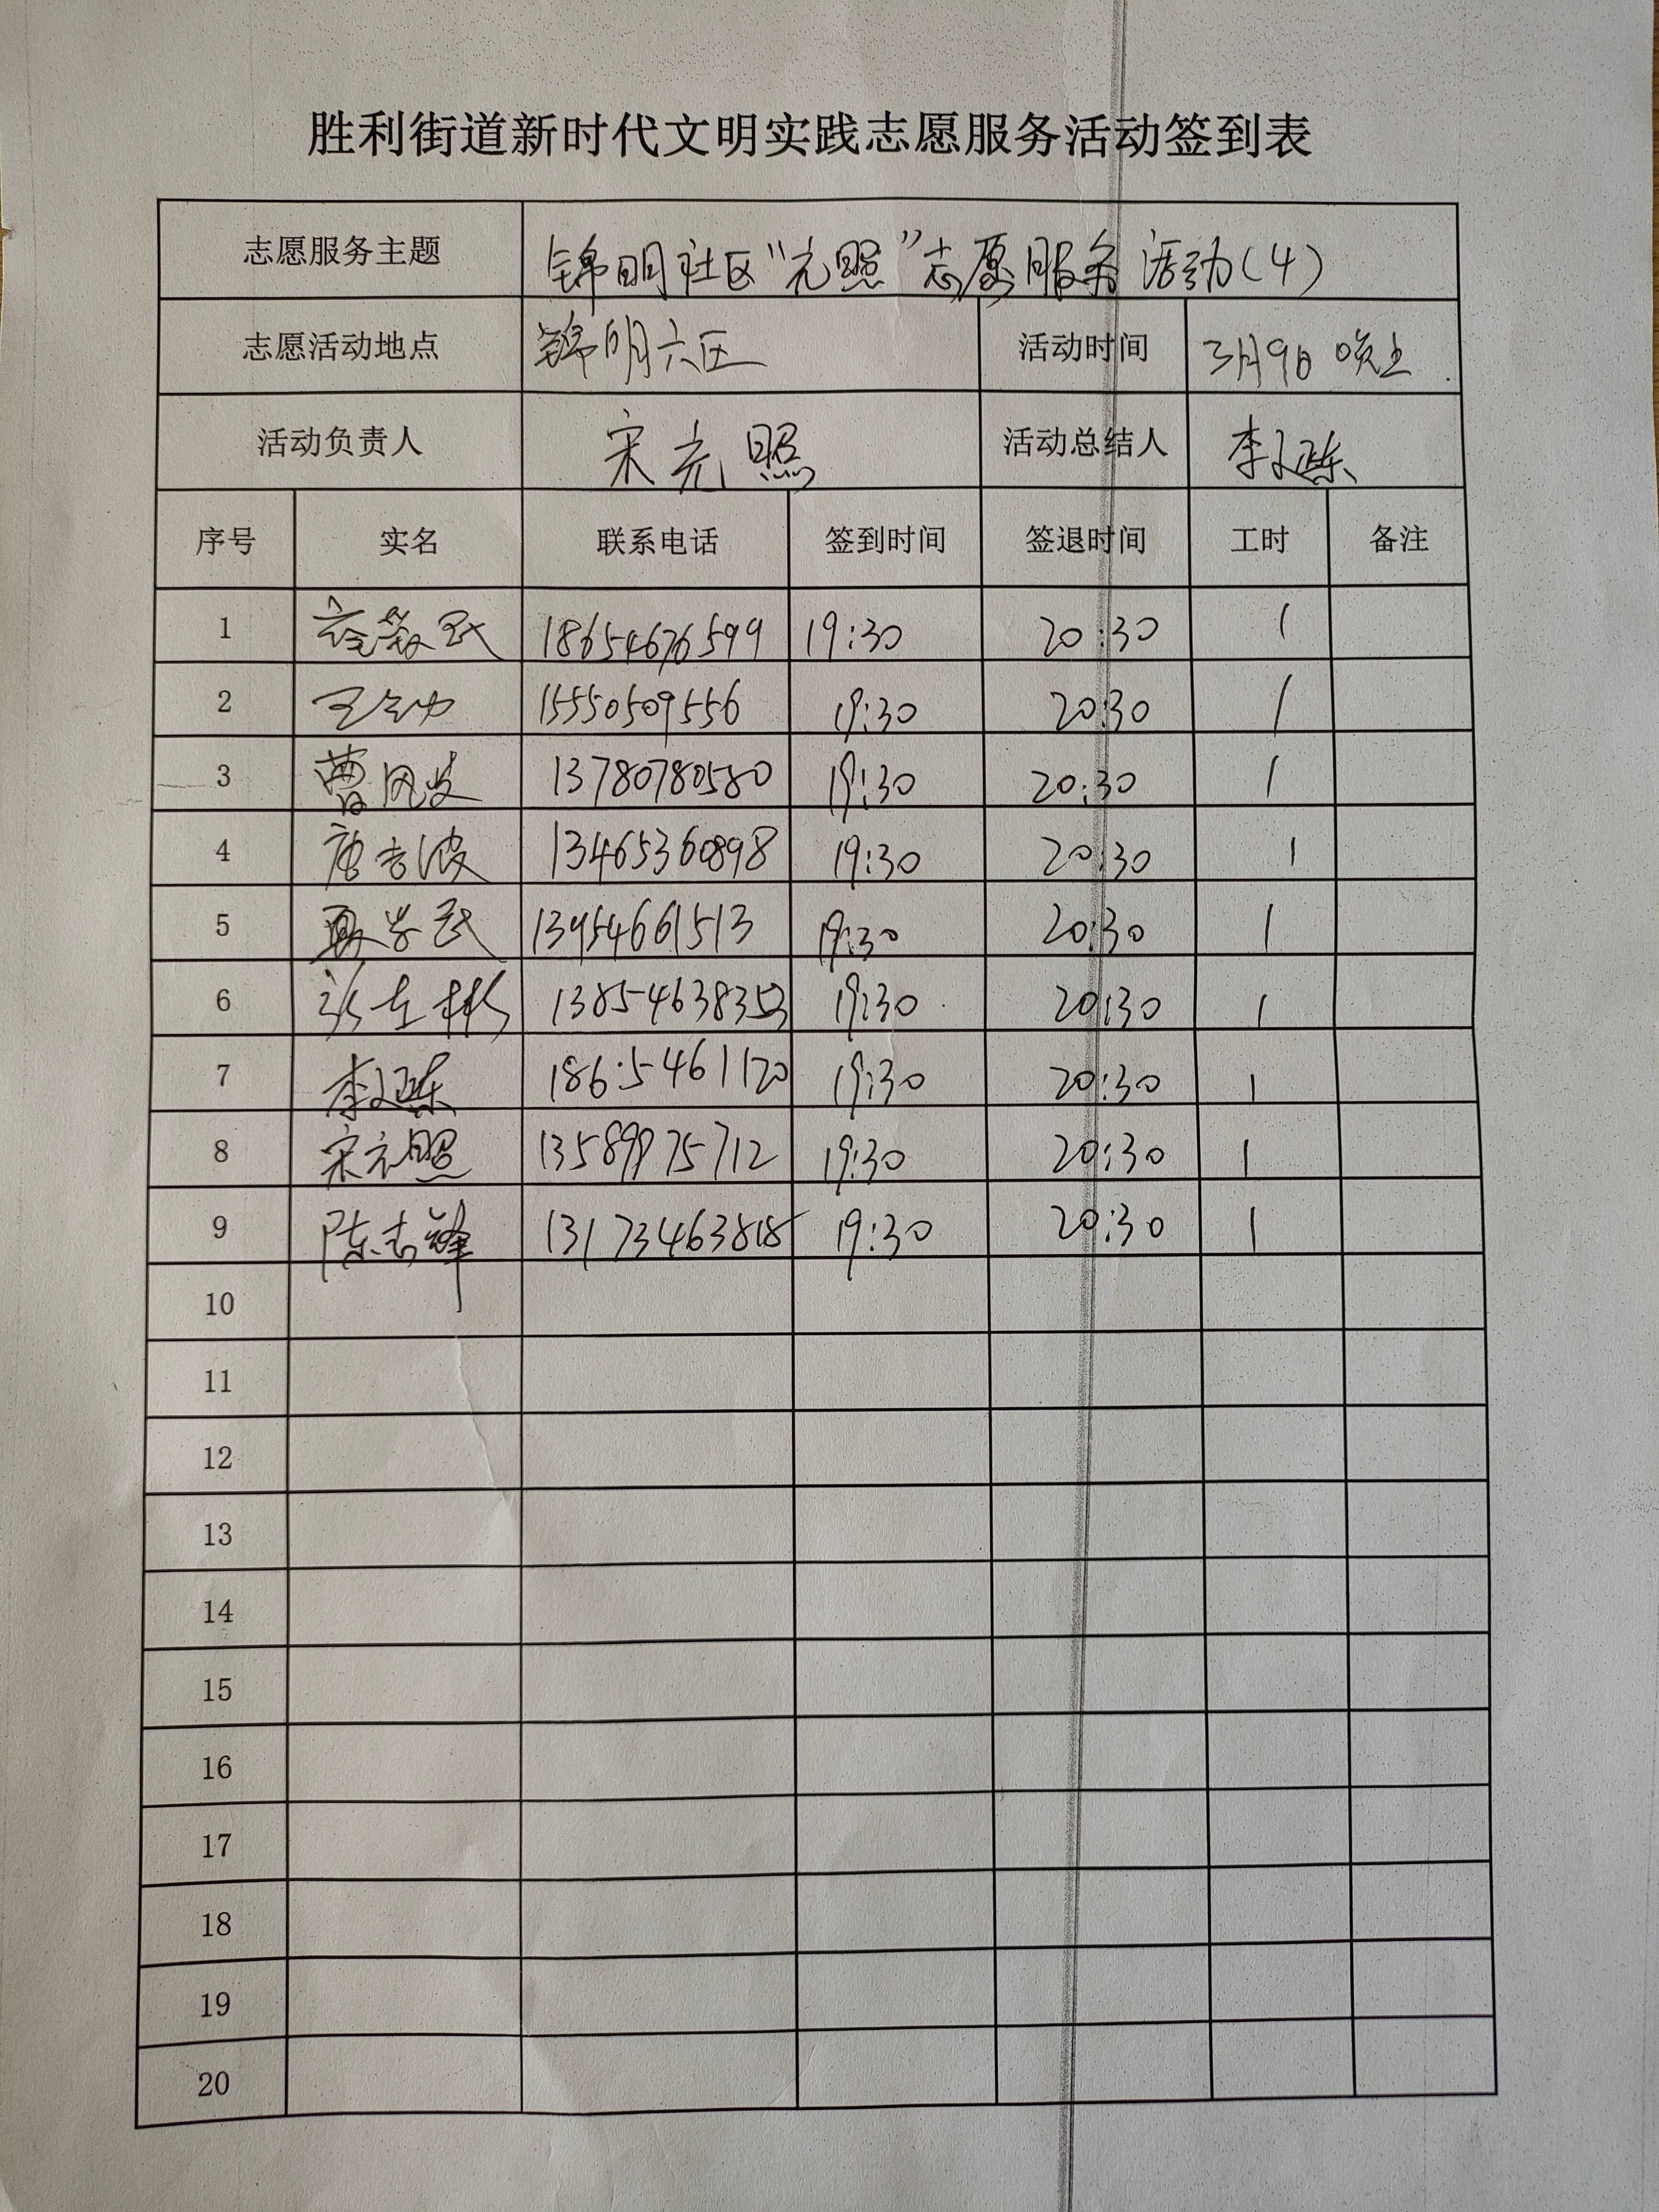 胜利街道新时代文明实践志愿服务活动签到表
志愿服务主题 锦明社区“元照”志愿服务活动(4)
志愿活动地点 锦明六区 活动时间 3月9日 晚上
活动负责人 宋元照 活动总结人 李延东
序号 实名 联系电话 签到时间 签退时间 工时 备注
1 18654676599 19:30 20:30 1
2 15550509556 19:30 20:30 1
3 曹风发 13780780580 19:30 20:30 1
4 唐吉波 13465360898 19:30 20:30 1
5 13954661513 19:30 20:30 1
6 19:30 20:30 1
7 李延东 18654461120 19:30 20:30 1
8 宋元照 13589975712 19:30 20:30 1
9 陈志锋 13173463818 19:30 20:30 1
10
11
12
13
14
15
16
17
18
19
20